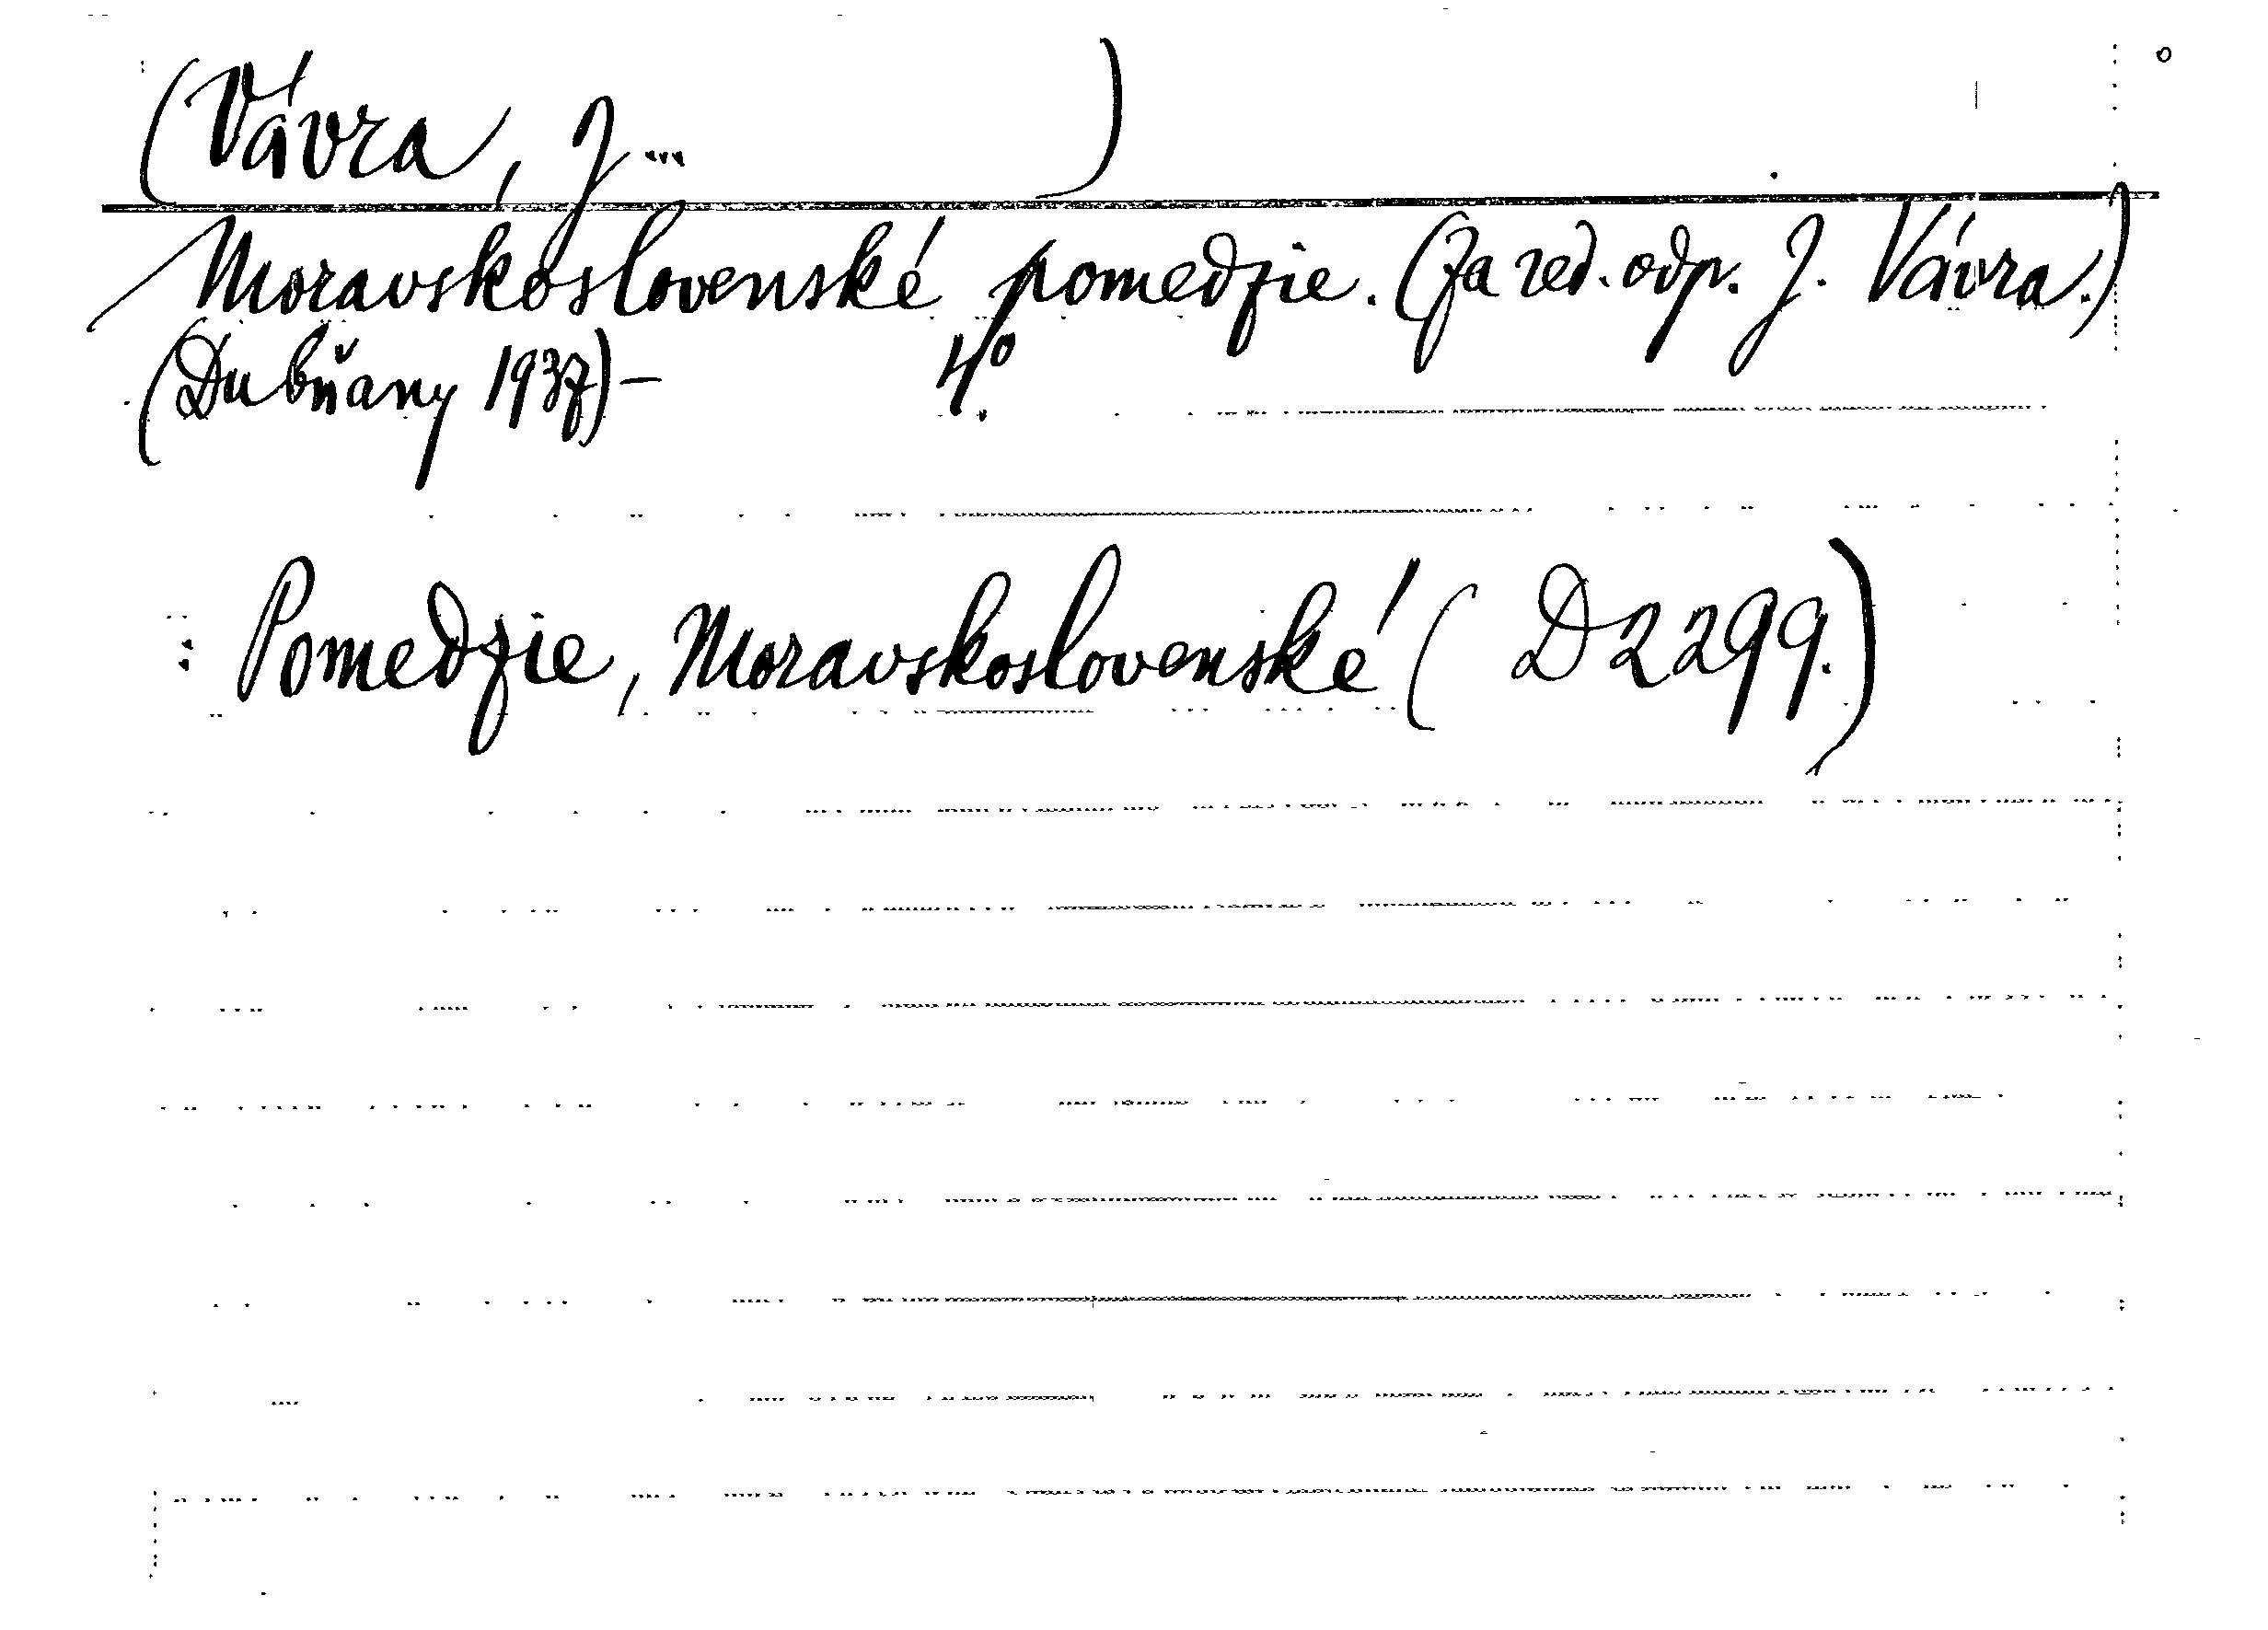 (Vávra, J... )
Moravskoslovenské pomedzie. (Za red. odp. J. Vávra.)
(Dubňany 1937)— 4°.
: Pomedzie, Moravskoslovenské (D2299.)